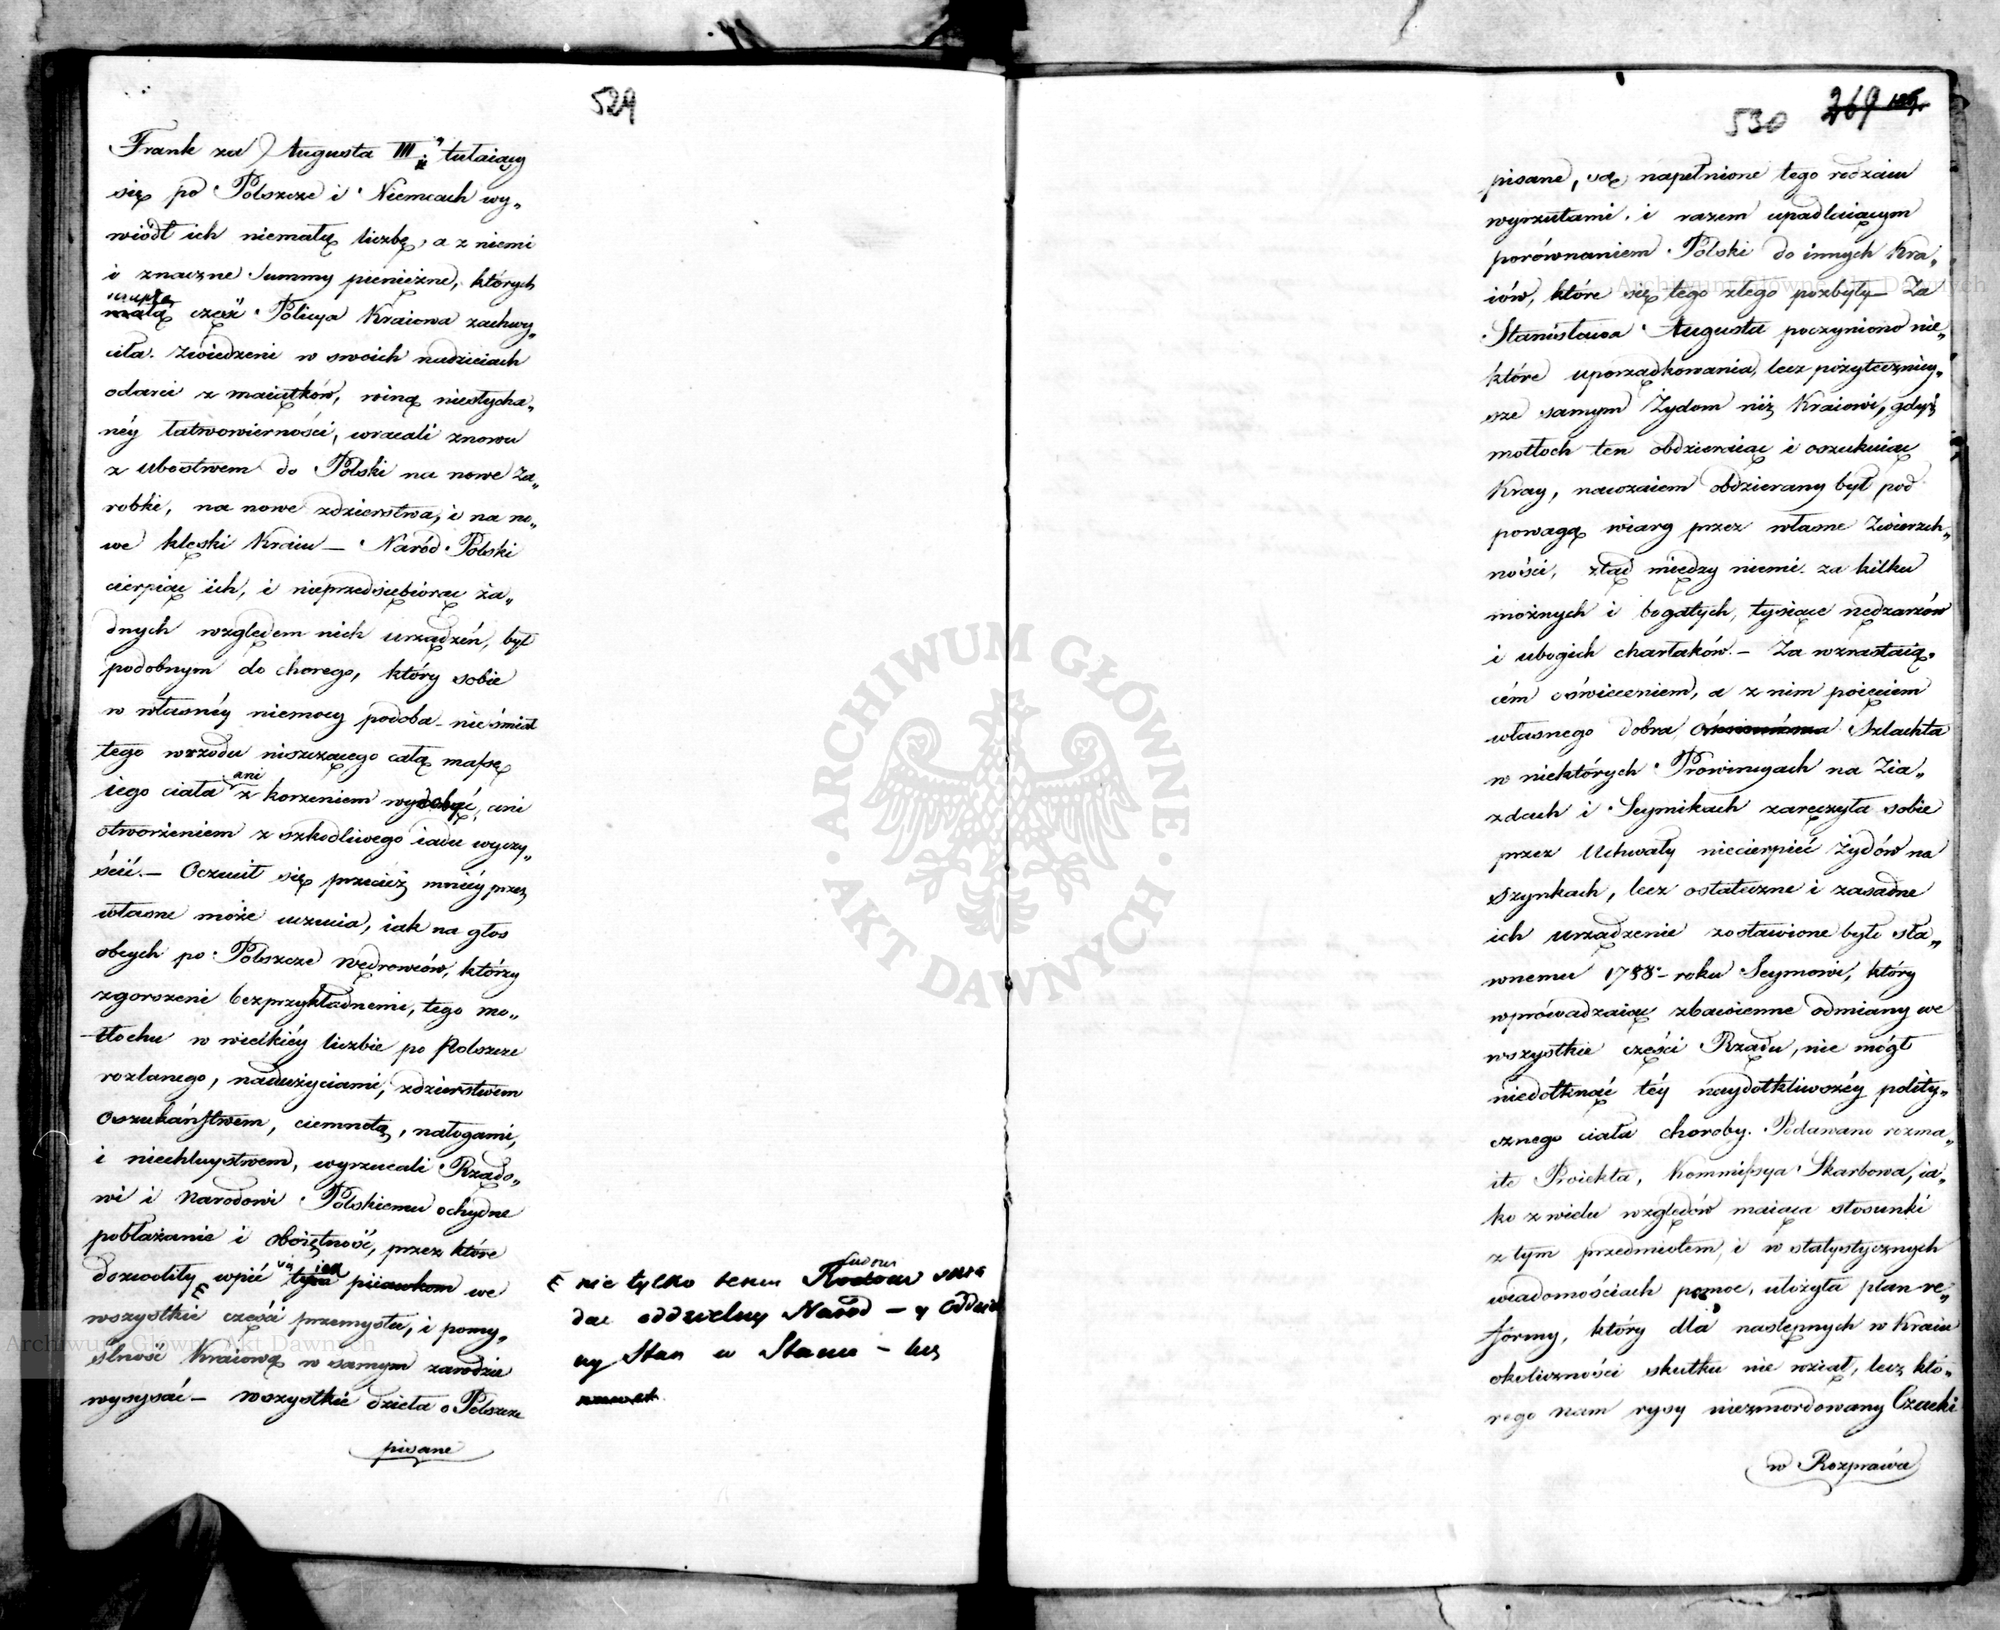 529
Frank za Augusta III. tułaiący
się po Polszcze i Niemcach wy„
wiódł ich niemałą liczbę, a z niemi
i znaczne Summy pieniężne, których
szczupłą
małą część Policya Kraiowa zachwy„
ciła. Zwiedzeni w swoich nadzieiach
odarci z maiątków, winą niesłycha„
néy łatwowierności, wracali znowu
z ubóstwem do Polski na nowe Za„
robki, na nowe zdzierstwa, i na no„
we klęski Kraiu — Naród Polski
cierpiąc ich, i nieprzedsiębiorąc ża„
dnych względem nich urządzeń, był
podobnym do chorego, który sobie
w własnéy niemocy podoba — nie śmiał
tego wrzodu niszczącego całą massę
iego ciała ani z korzeniem wydobyć, ani
otworzeniem z szkodliwego iadu wyczy„
ścić. — Ocucił się przecież mniéy przez
własne może uczucia, iak na głos
obcych po Polszcze Wędrowców, którzy
zgorszeni bezprzykładnemi, tego mo„
tłochu w wielkiéy liczbie po Polszcze
rozlanego, nadużyciami, zdzierstwem
Oszukaństwem, ciemnotą, nałogami,
i niechluystwem, wyrzucali Rządo„
wi i Narodowi Polskiemu ochydne
pobłażanie i oboiętność, przez które
dozwoliły wpić tym piiawkom we
wszystkie części przemysłu, i pomy„
slność Kraiową w samym zarodzie
wysysać — wszystkie dzieła o Polszcze
pisane
nie tylko temu
Ludowi
dać oddzielny Naród — y Oddziel
ny Stan w Stanie — lecz
530
269
pisane, są napełnione tego rodzaiu
wyrzutami, i razem upadlaiącym
porównaniem Polski do innych Kra„
iów, które się tego złego pozbyły — Za
Stanisława Augusta poczyniono nie„
które uporządkowania, lecz pożyteczniey„
sze samym Żydom niż Kraiowi, gdyż
motłoch ten obdzieraiąc i oszukuiąc
Kray, nawzaiem obdzierany był pod
powagą wiary przez własne Zwierzch„
ności, ztąd między niemi za kilku
możnych i bogatych, tysiące nędzarzów
i ubogich charłaków. — Za wzrastaią„
cém oświeceniem, a z nim poięciem
własnego dobra Szlachta
w niektórych Prowincyach na Zia„
zdach i Seymikach zaręczyła sobie
przez Uchwały niecierpieć Żydów na
Szynkach, lecz ostateczne i zasadne
ich urządzenie zostawione było sła„
wnemu 1788. roku Seymowi, który
wprowadzaiąc zbawienne odmiany we
wszystkie części Rządu, nie mógł
niedotknąć téy naydotkliwszéy polity„
cznego ciała choroby. Podawano rozma„
ite Proiekta, Kommissya Skarbowa, ia„
ko z wielu względów maiąca stosunki
z tym przedmiotem, i w statystycznych
wiadomościach pomoc, ułożyła plan re„
formy, który dla następnych w Kraiu
okoliczności skutku nie wziął, lecz któ„
rego nam rysy niezmordowany Czacki
w Rozprawie
ARCHIWUM GŁÓWNE · AKT DAWNYCH ·
Archiwum Główne Akt Dawnych
Archiwum Główne Akt Dawnych